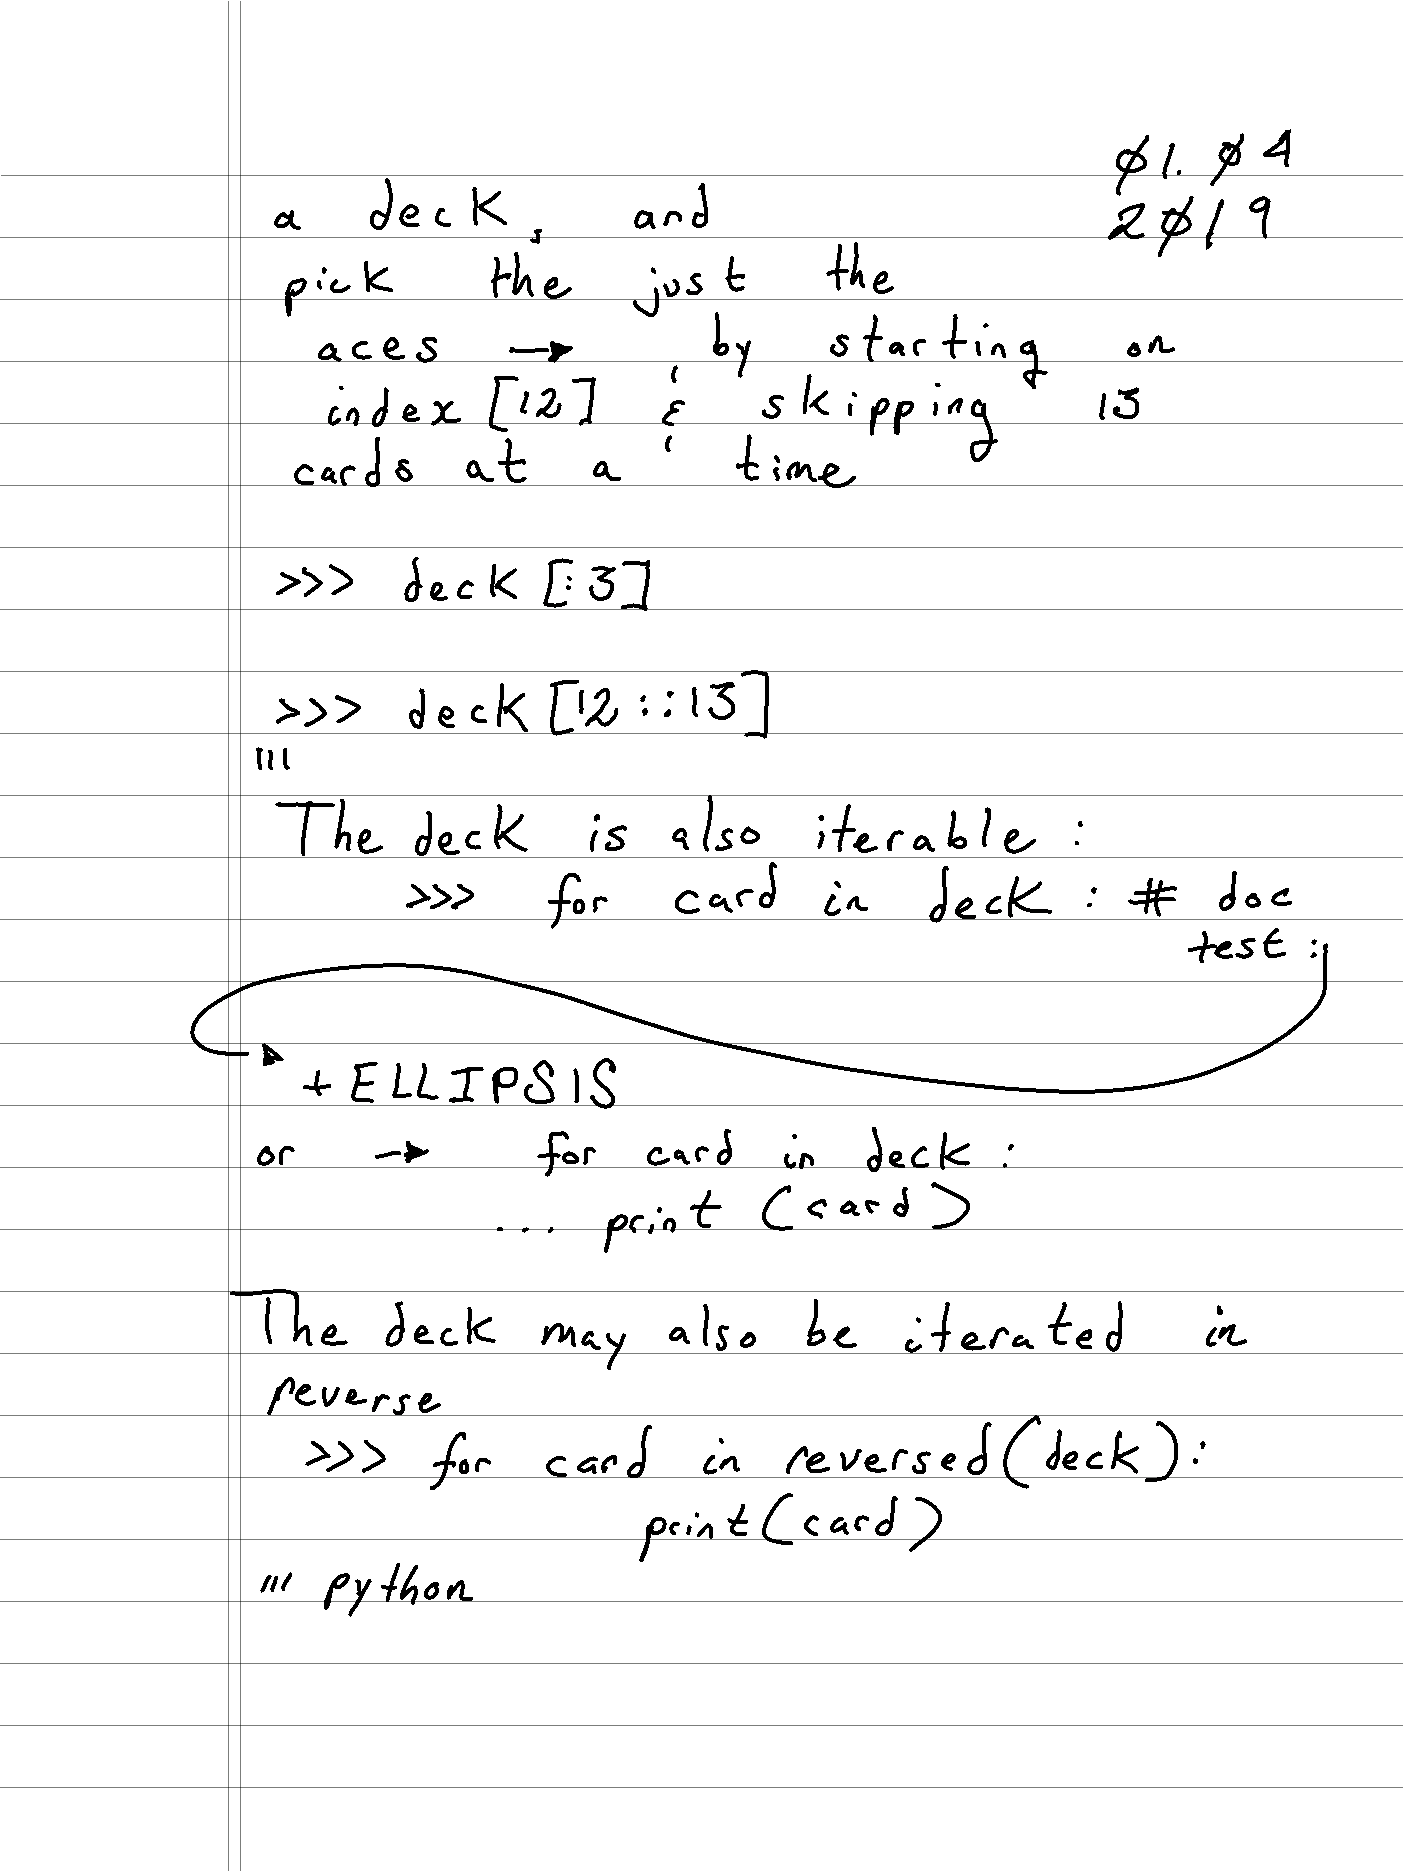 01.04
2019
a deck, and
pick the just the
aces → by starting on
index [12] & skipping 13
cards at a time
>>> deck [:3]
>>> deck [12::13]
'''
The deck is also iterable:
>>> for card in deck: # doc
test:
+ELLIPSIS
or → for card in deck:
... print (card)
The deck may also be iterated in
reverse
>>> for card in reversed(deck):
print(card)
''' python